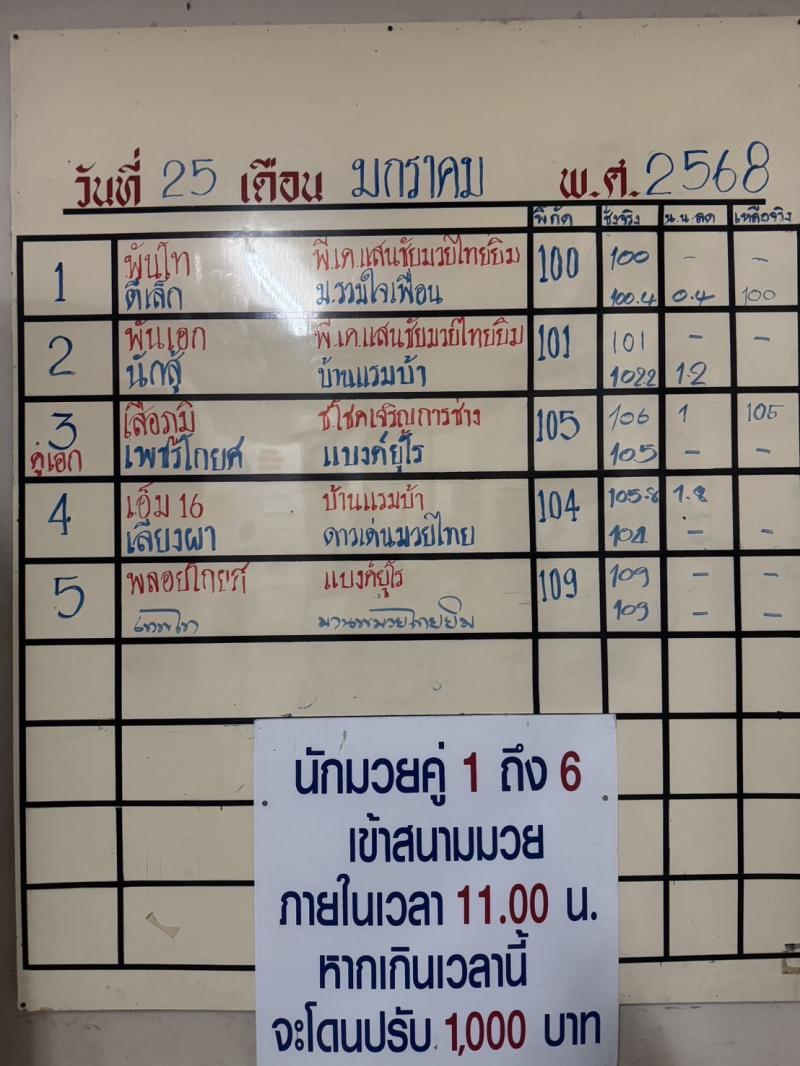 วันที่ 25 เดือน มกราคม พ.ศ. 2568
พิกัด ชั่งจริง น.น.ลด เหลือจริง
1 พันโท พี.เค.แสนชัยมวยไทยยิม 100 100 - -
ตีเล็ก ม.รวมใจเพื่อน 100.4 0.4 100
2 พันเอก พี.เค.แสนชัยมวยไทยยิม 101 101 - -
นักสู้ บ้านแรมบ้า 102.2 1.2
3 เสือภูมิ ช.โชคเจริญการช่าง 105 106 1 105
คู่เอก เพชรโกยศ แบงค์ยูโร 105 - -
4 เอ็ม 16 บ้านแรมบ้า 104 105.8 1.8
เลียงผา ดาวเด่นมวยไทย 104 - -
5 พลอยโกยศ แบงค์ยูโร 109 109 - -
109 - -
นักมวยคู่ 1 ถึง 6
เข้าสนามมวย
ภายในเวลา 11.00 น.
หากเกินเวลานี้
จะโดนปรับ 1,000 บาท